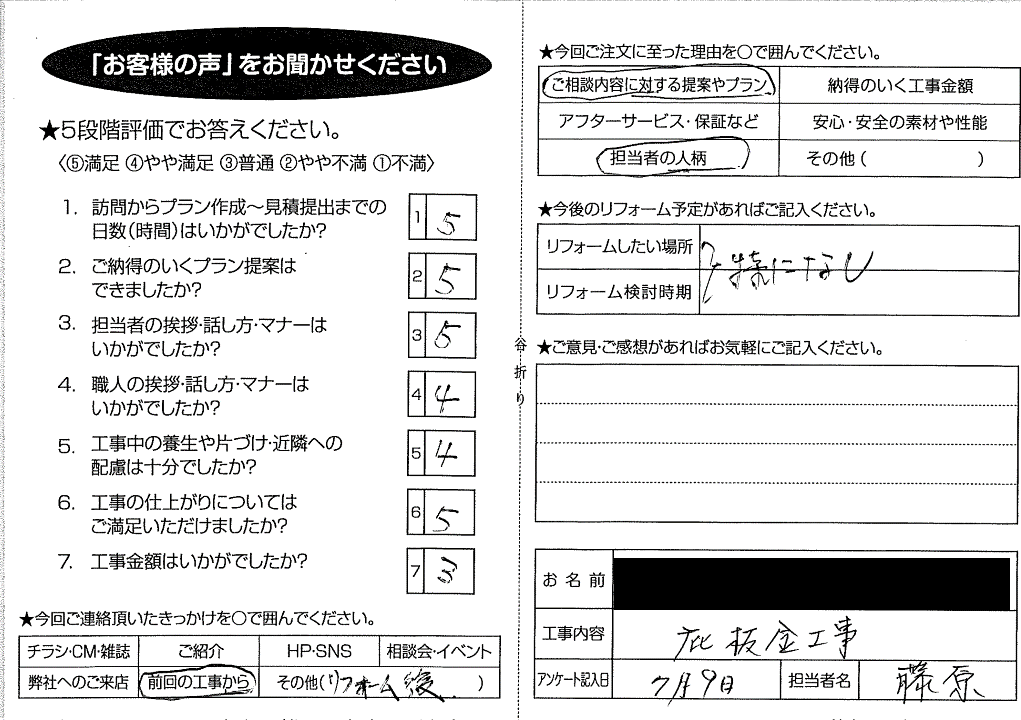 「お客様の声」をお聞かせください
★5段階評価でお答えください。
〈⑤満足 ④やや満足 ③普通 ②やや不満 ①不満〉
1. 訪問からプラン作成～見積提出までの
日数(時間)はいかがでしたか?
1 5
2. ご納得のいくプラン提案は
できましたか?
2 5
3. 担当者の挨拶・話し方・マナーは
いかがでしたか?
3 5
4. 職人の挨拶・話し方・マナーは
いかがでしたか?
4 4
5. 工事中の養生や片づけ・近隣への
配慮は十分でしたか?
5 4
6. 工事の仕上がりについては
ご満足いただけましたか?
6 5
7. 工事金額はいかがでしたか?
7 3
★今回ご連絡頂いたきっかけを○で囲んでください。
チラシ・CM・雑誌 ご紹介 HP・SNS 相談会・イベント
弊社へのご来店 前回の工事から その他(リフォーム後 )
谷折り
★今回ご注文に至った理由を○で囲んでください。
ご相談内容に対する提案やプラン 納得のいく工事金額
アフターサービス・保証など 安心・安全の素材や性能
担当者の人柄 その他( )
★今後のリフォーム予定があればご記入ください。
リフォームしたい場所
特になし
リフォーム検討時期
★ご意見・ご感想があればお気軽にご記入ください。
お名前
工事内容 庇板金工事
アンケート記入日 7月9日 担当者名 藤原